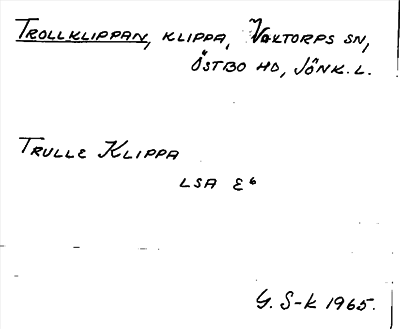 TROLLKLIPPAN, KLIPPA, VAKTORPS SN,
ÖSTBO HD, JÖNK. L.
TRULLE KLIPPA
LSA E6
G. S-k 1965.